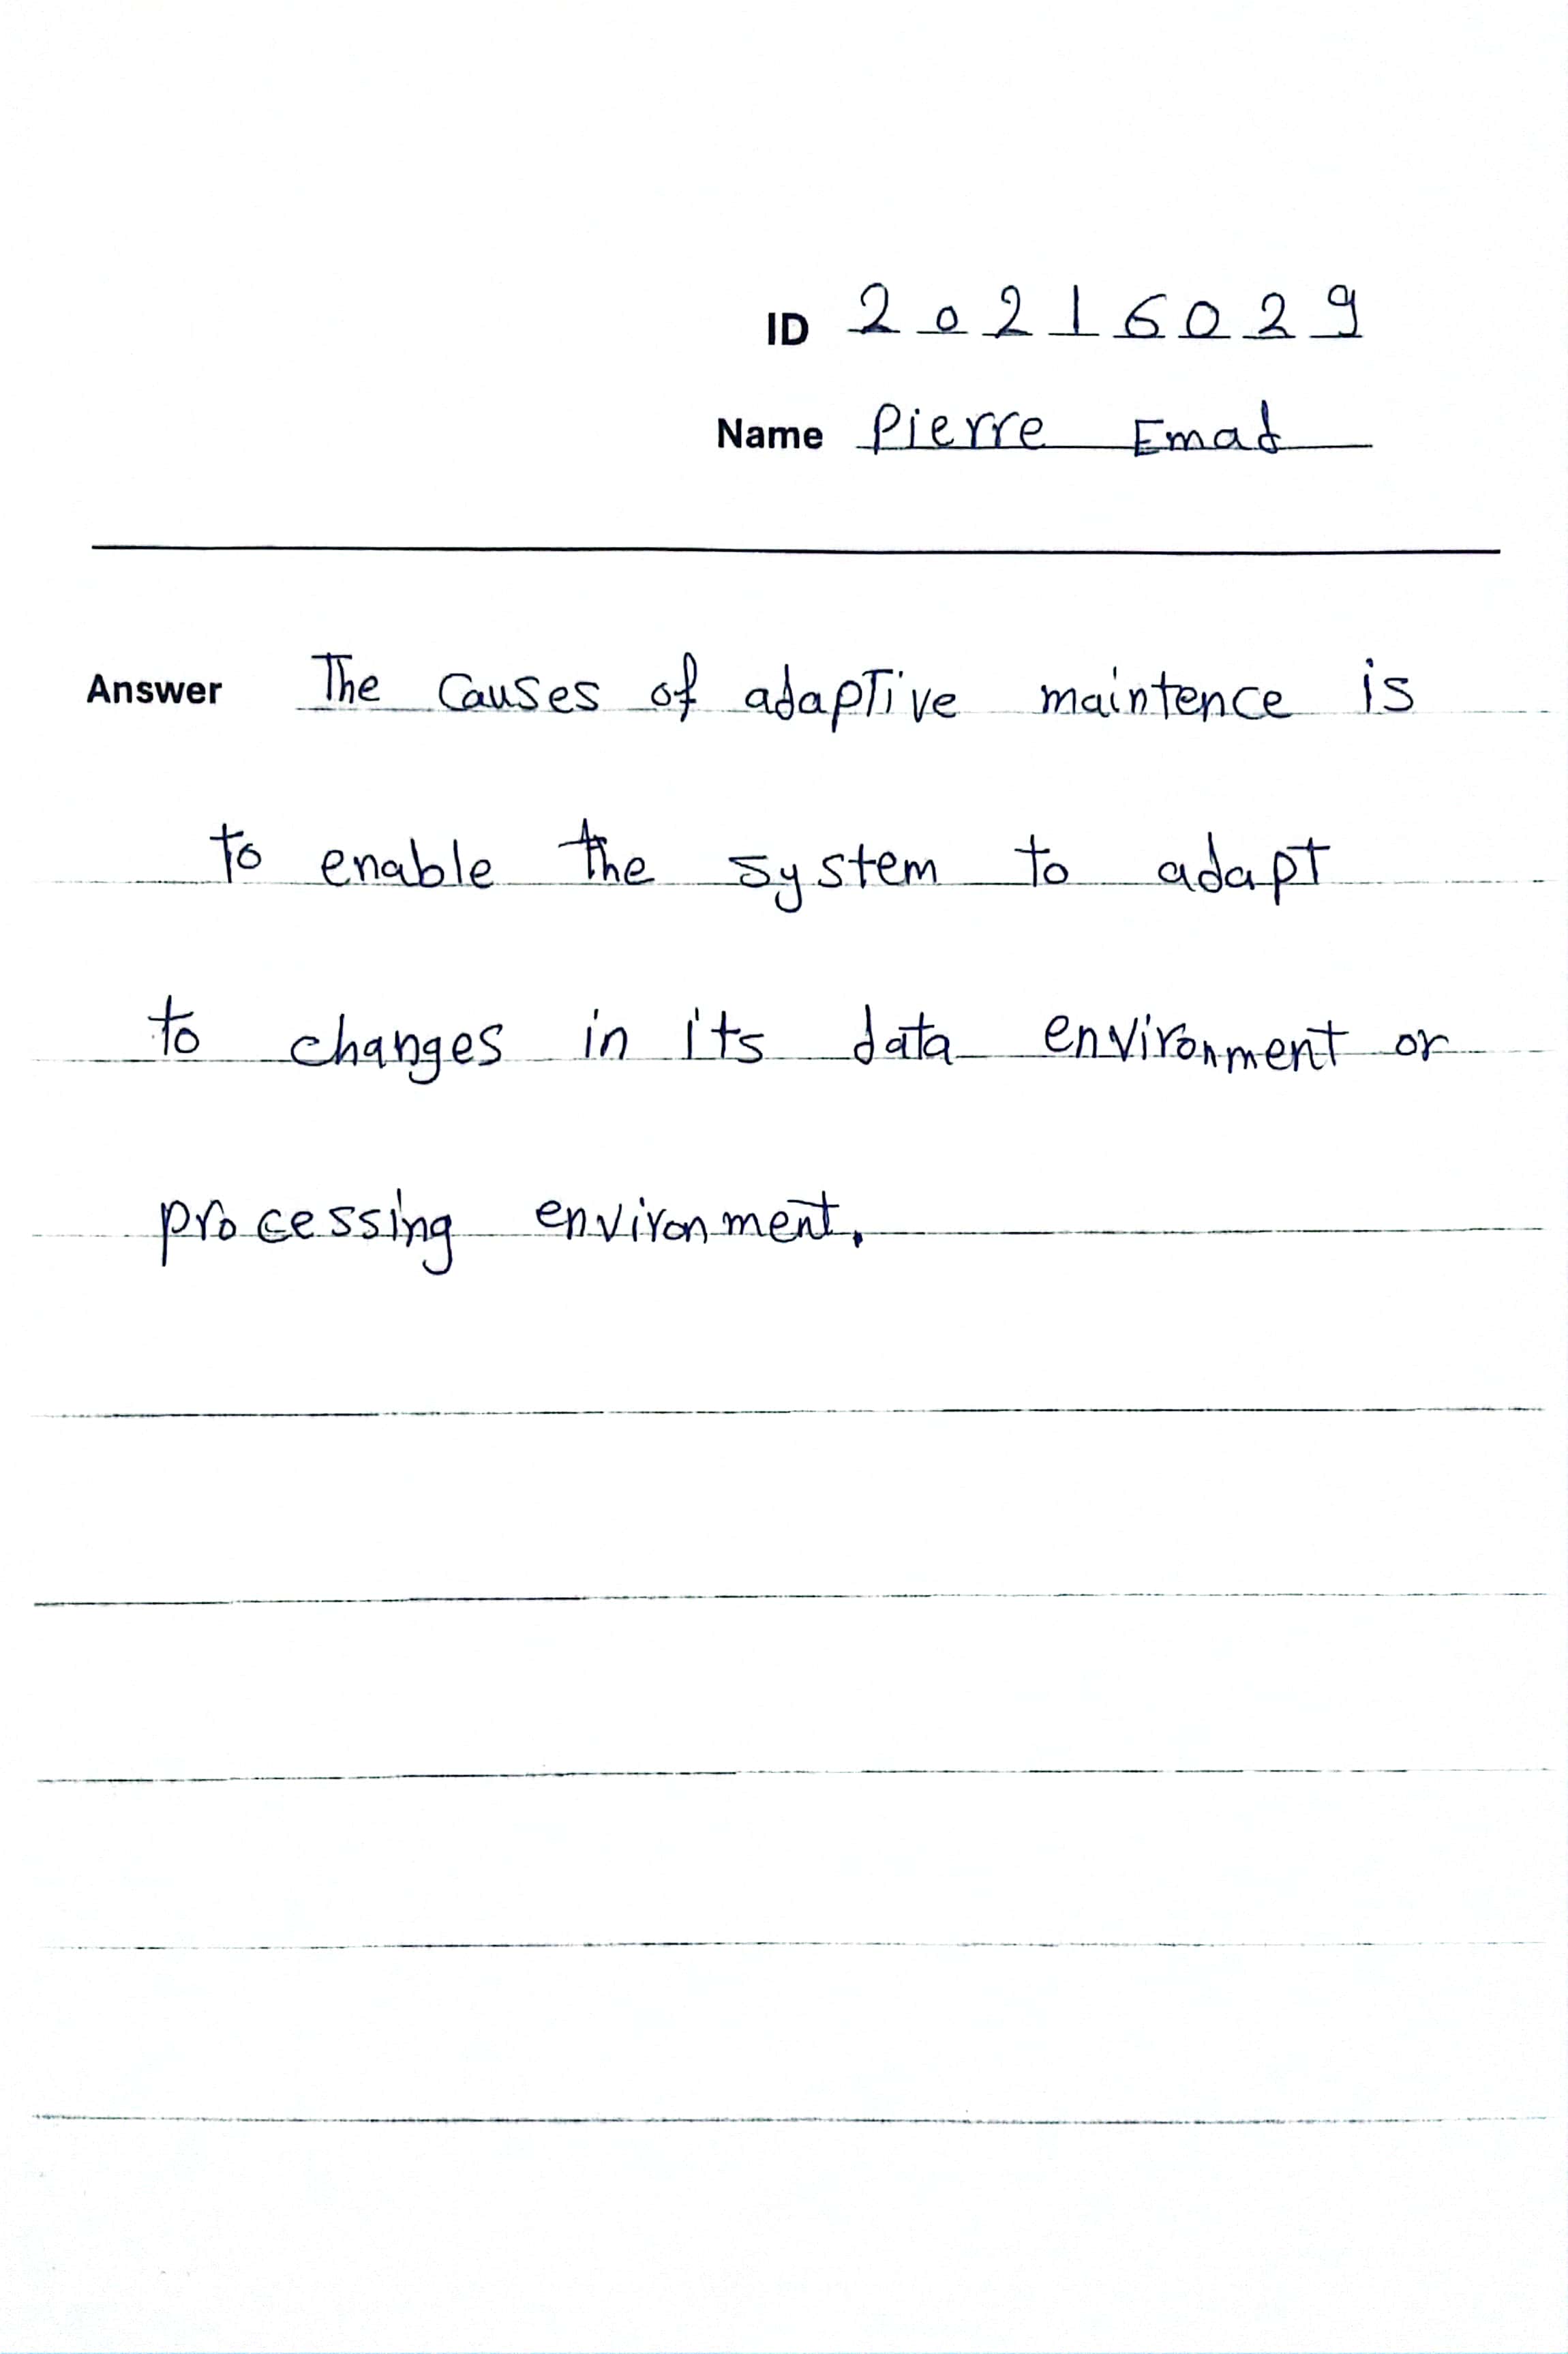 ID 20216029
Name Pierre Emad
Answer The causes of adaptive maintence is
to enable the system to adapt
to changes in its data environment or
processing environment.